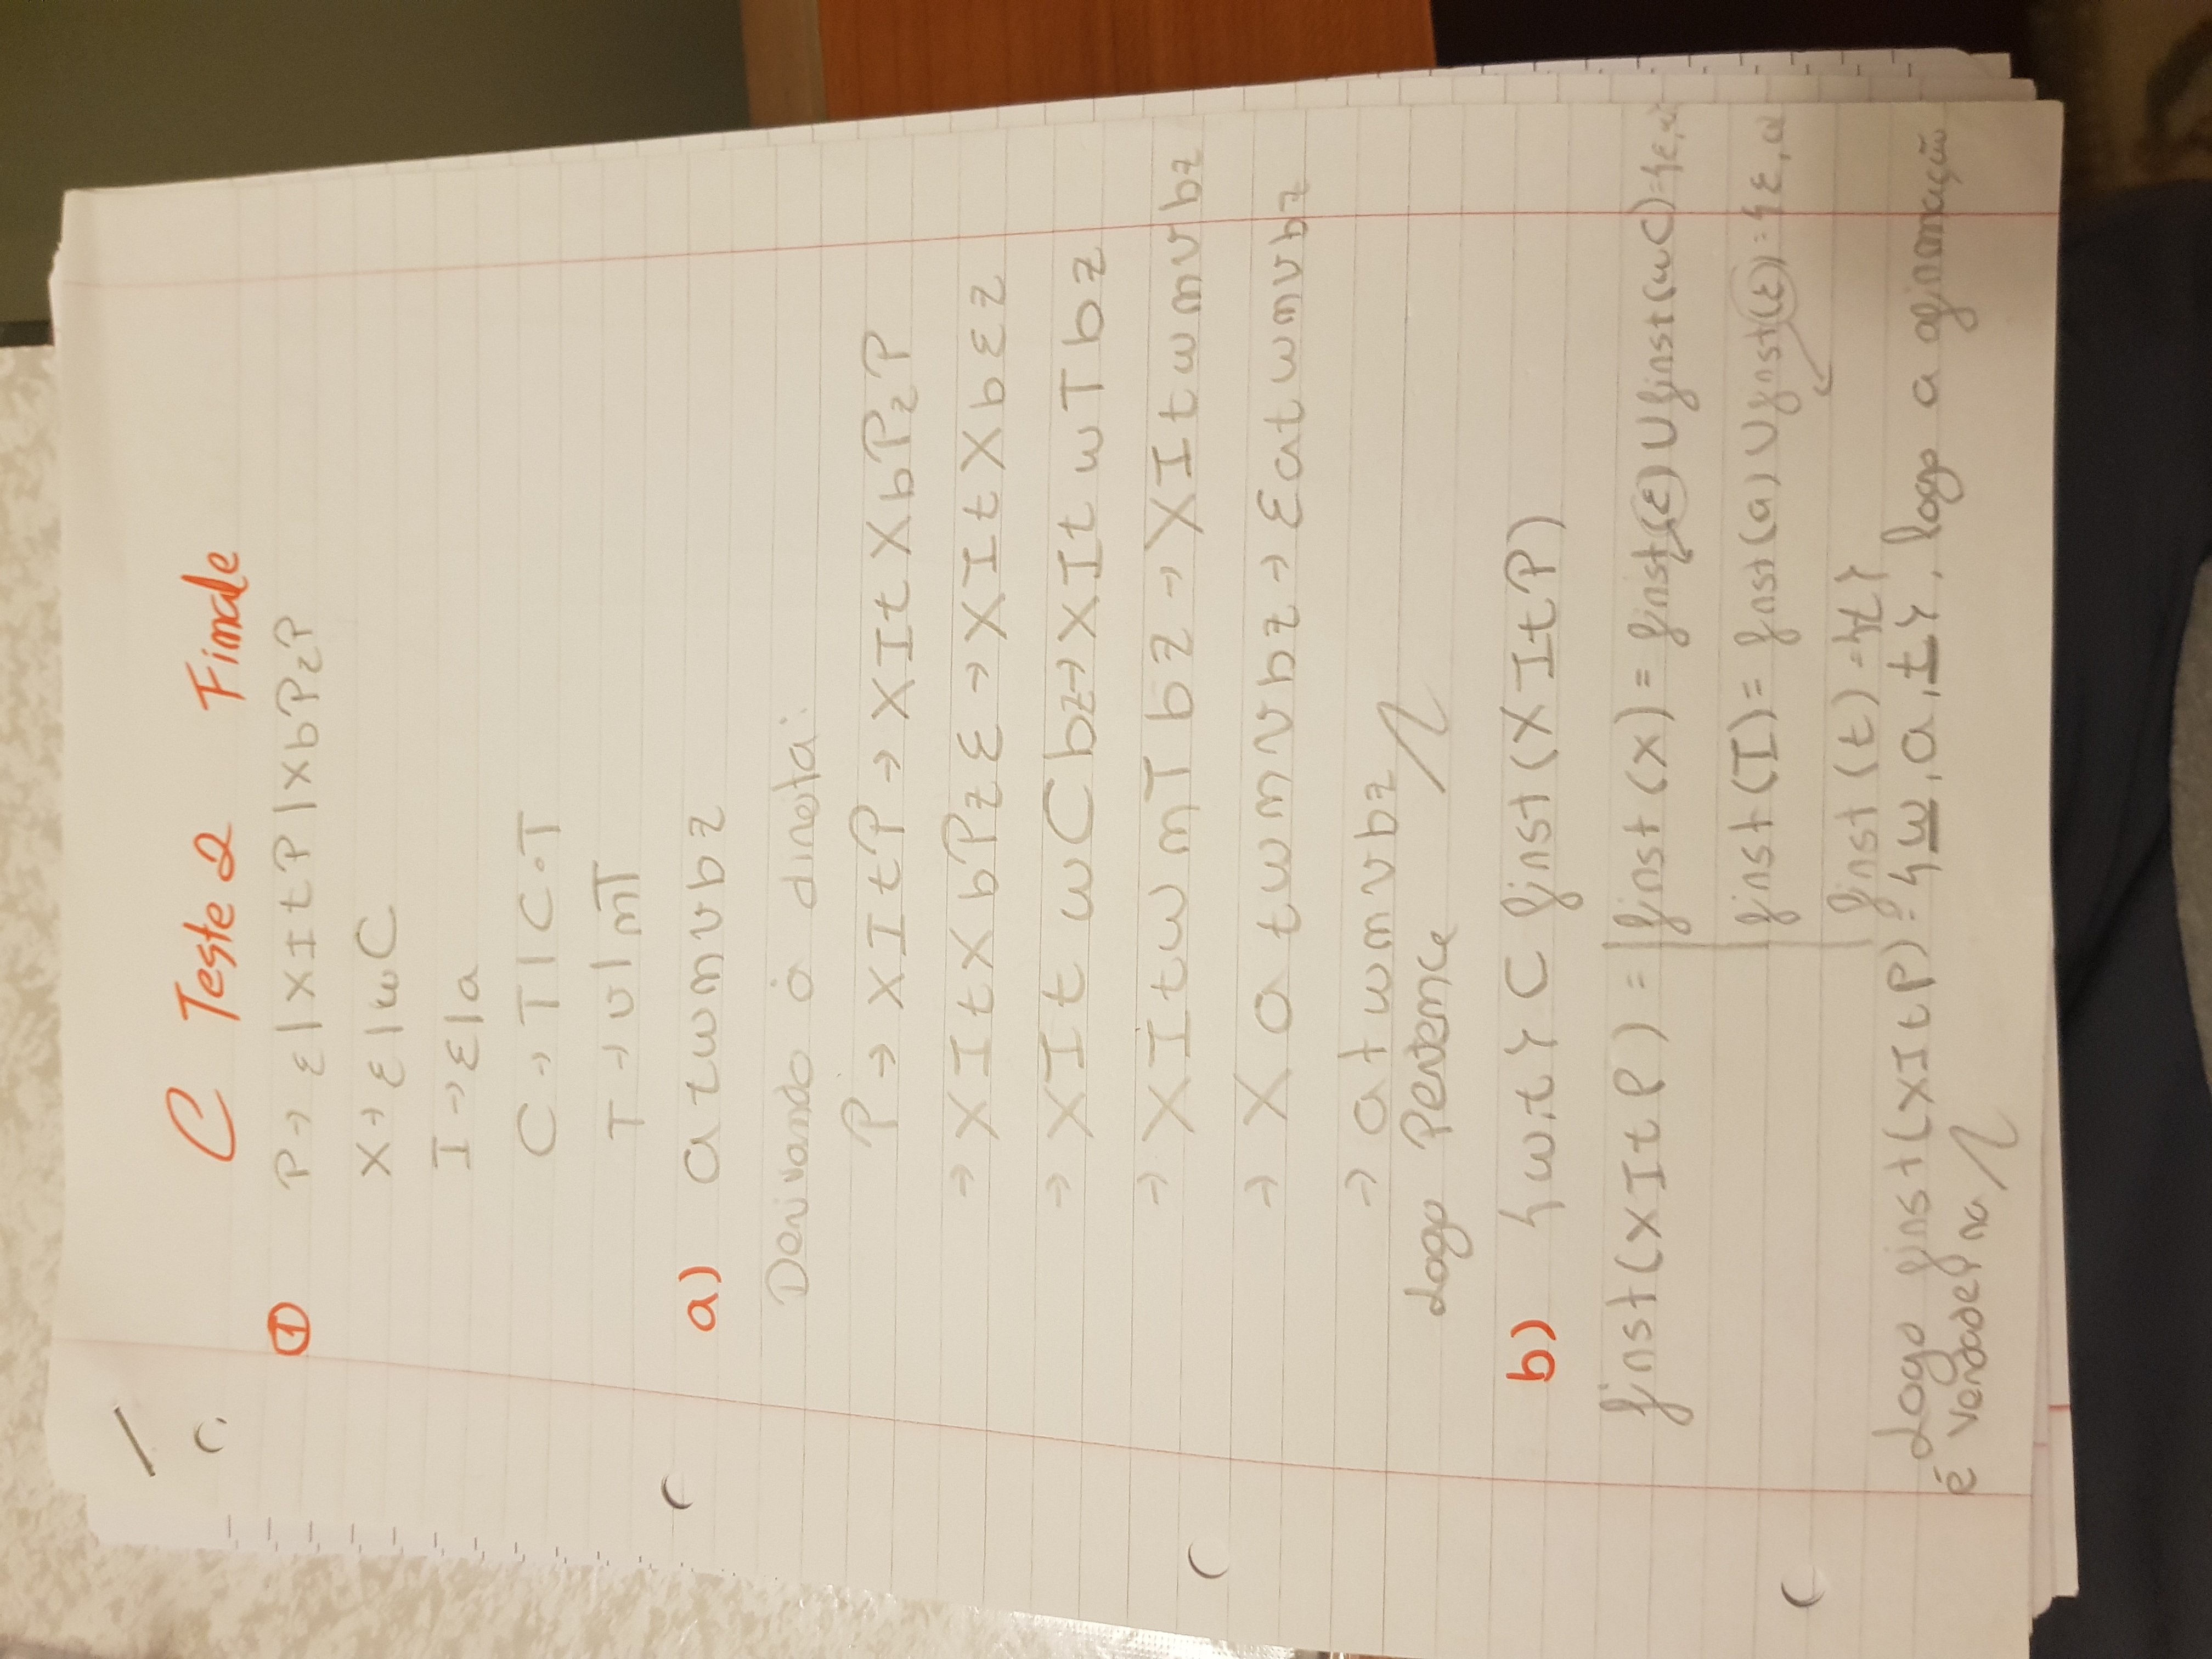 C Teste 2 Finale
① P → ε | X I t P | X b P z P
X → ε | w C
I → ε | a
C → T | C . T
T → v | n T
a) a t w n v b z
Derivando à direita:
P → X I t P → X I t X b P z P
→ X I t X b P z ε → X I t X b ε z
→ X I t w C b z → X I t w T b z
→ X I t w n T b z → X I t w n v b z
→ X a t w n v b z → ε a t w n v b z
→ a t w n v b z
Logo Pertence
b) {w,t} ⊂ first(X I t P)
first(X I t P) = first(X) = first(ε) ∪ first(wC) = {ε,w
first(I) = first(a) ∪ first(ε) = {ε,a
first(t) = {t}
Logo first(X I t P) = {w, a, t}, logo a afirmação
é verdadeira